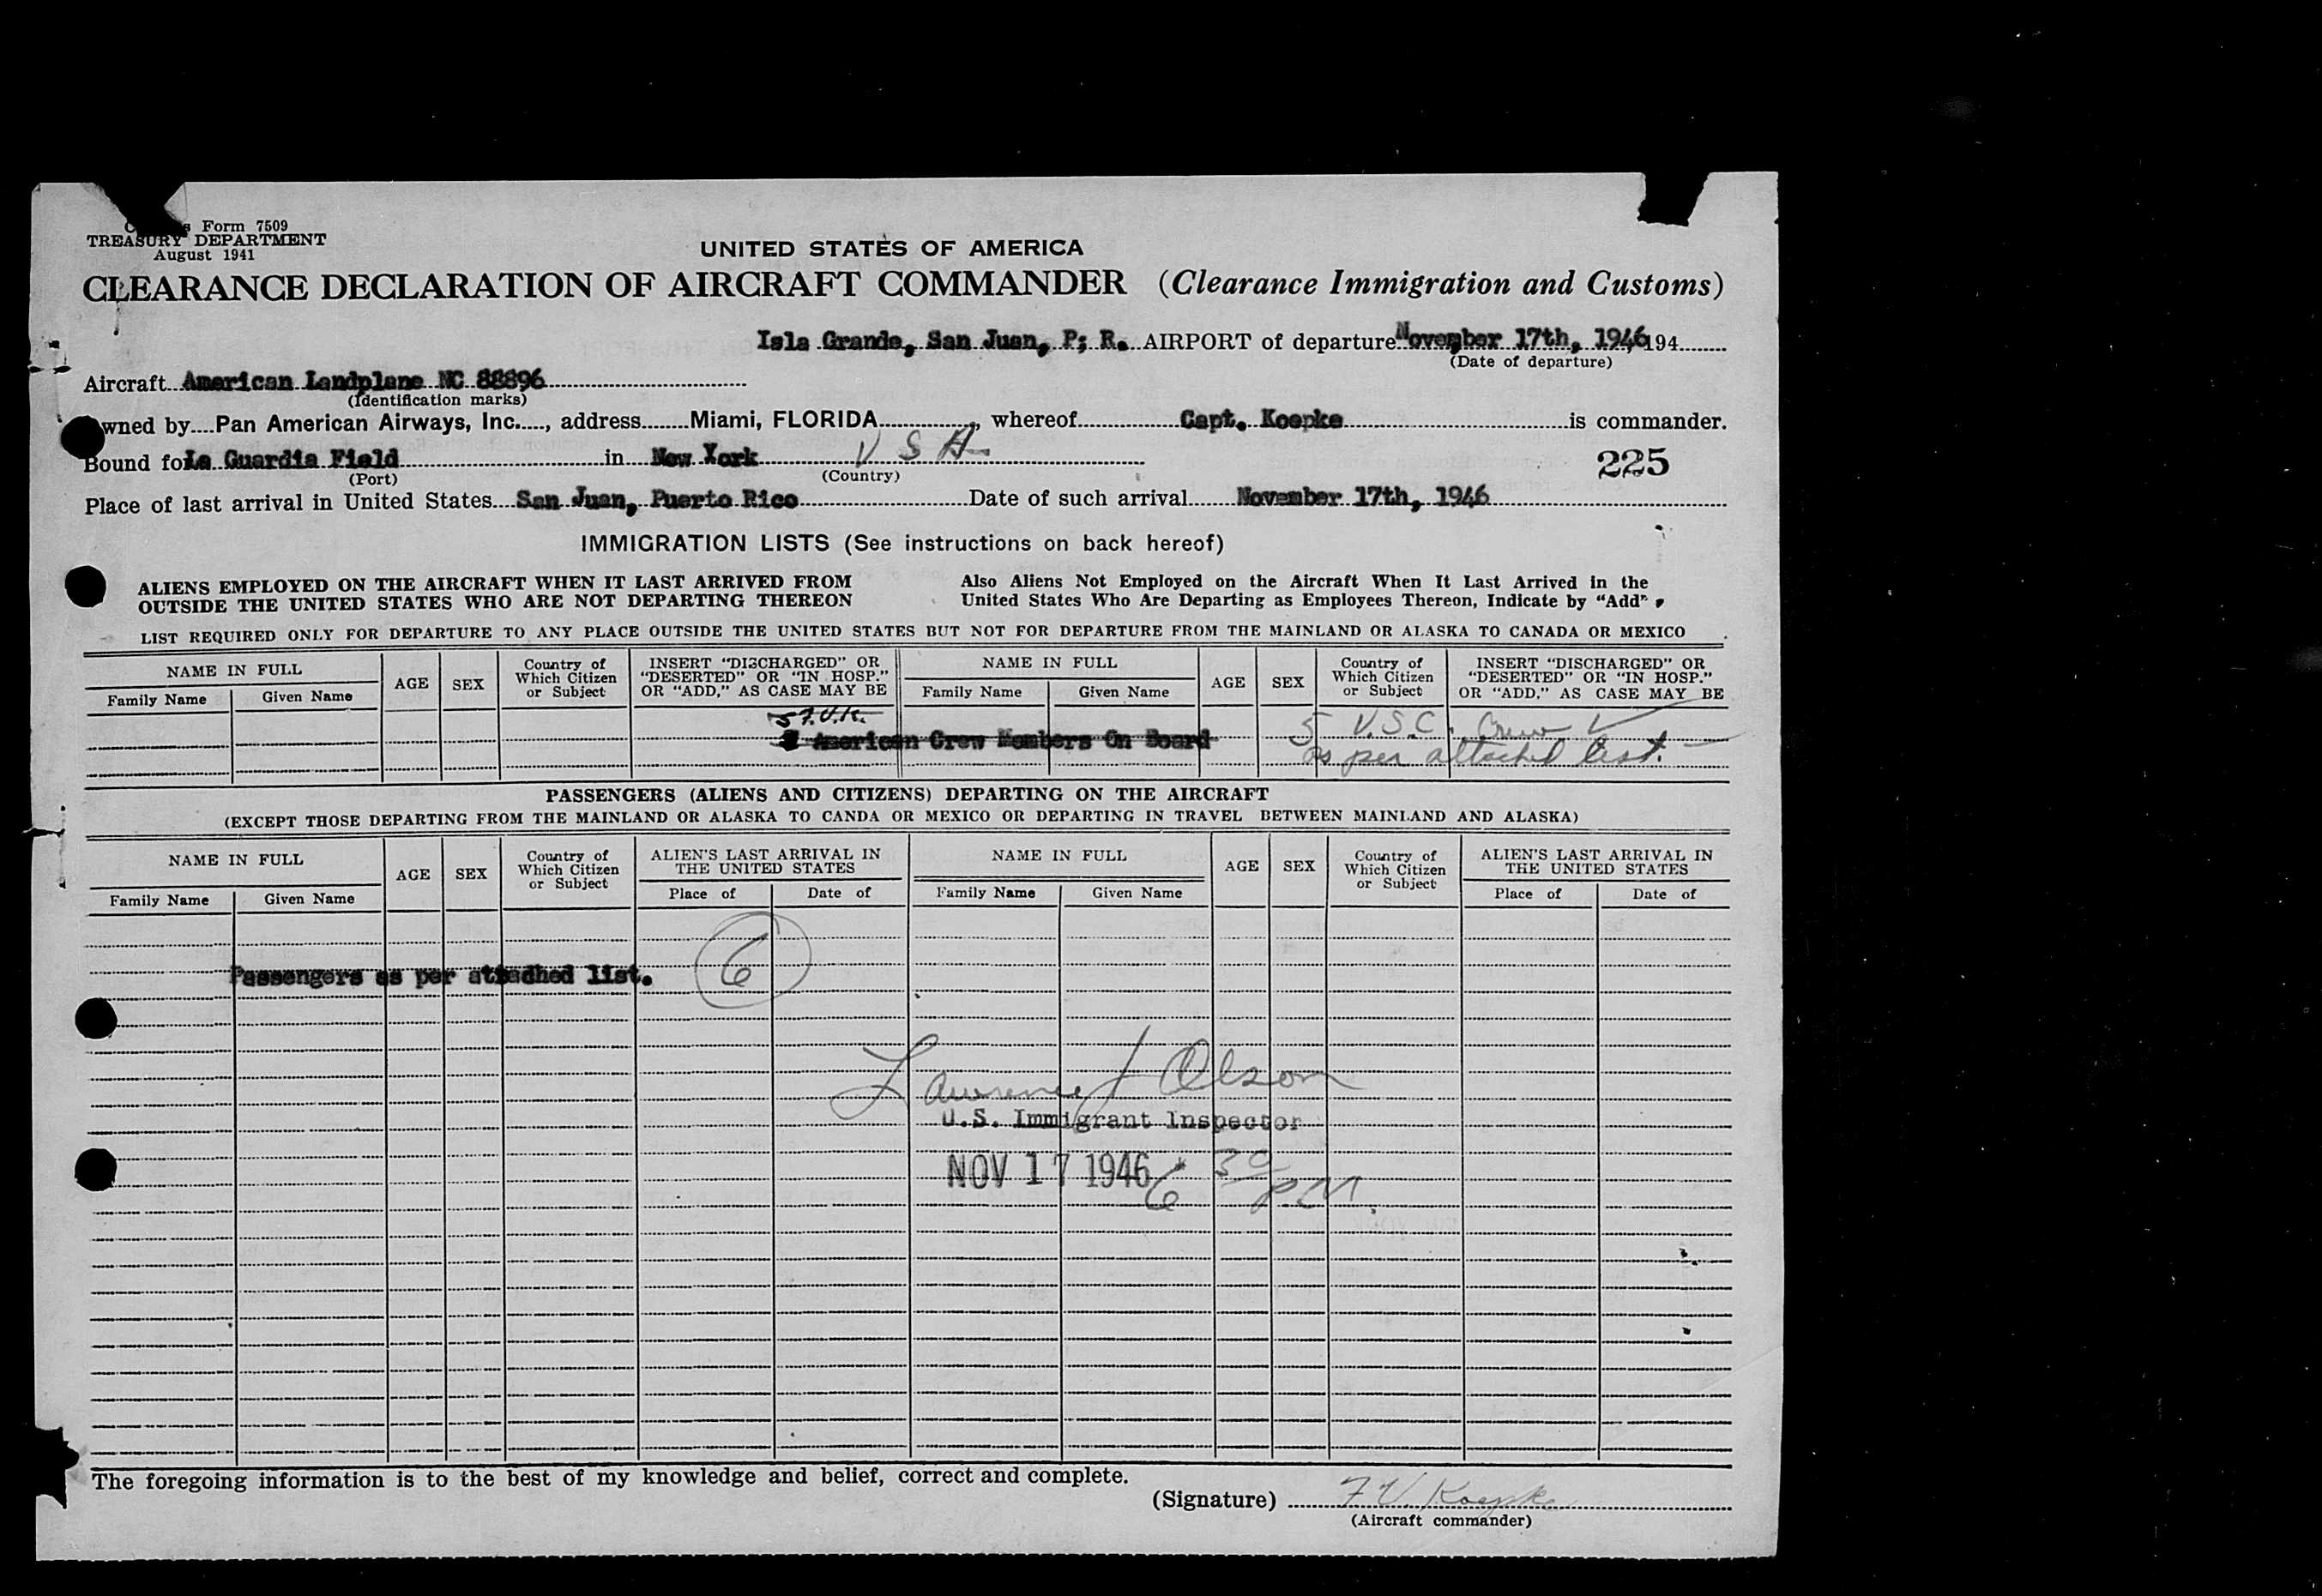 Form 7509
TREASURY DEPARTMENT
August 1941
UNITED STATES OF AMERICA
CLEARANCE DECLARATION OF AIRCRAFT COMMANDER (Clearance Immigration and Customs)
Isla Grande, San Juan, P; R. AIRPORT of departure November 17th, 1946, 194
(Date of departure)
Aircraft American Landplane NC 88896
(Identification marks)
Owned by Pan American Airways, Inc., address Miami, FLORIDA, whereof Capt. Koepke is commander.
Bound for La Guardia Field in New York U S A
(Port) (Country)
225
Place of last arrival in United States San Juan, Puerto Rico Date of such arrival November 17th, 1946
IMMIGRATION LISTS (See instructions on back hereof)
ALIENS EMPLOYED ON THE AIRCRAFT WHEN IT LAST ARRIVED FROM
OUTSIDE THE UNITED STATES WHO ARE NOT DEPARTING THEREON
Also Aliens Not Employed on the Aircraft When It Last Arrived in the
United States Who Are Departing as Employees Thereon, Indicate by "Add"
LIST REQUIRED ONLY FOR DEPARTURE TO ANY PLACE OUTSIDE THE UNITED STATES BUT NOT FOR DEPARTURE FROM THE MAINLAND OR ALASKA TO CANADA OR MEXICO
NAME IN FULL
Family Name Given Name
AGE
SEX
Country of
Which Citizen
or Subject
INSERT "DISCHARGED" OR
"DESERTED" OR "IN HOSP."
OR "ADD," AS CASE MAY BE
NAME IN FULL
Family Name Given Name
AGE
SEX
Country of
Which Citizen
or Subject
INSERT "DISCHARGED" OR
"DESERTED" OR "IN HOSP."
OR "ADD," AS CASE MAY BE
American Crew Members On Board
5 U.S.C. Crew
as per attached list.
PASSENGERS (ALIENS AND CITIZENS) DEPARTING ON THE AIRCRAFT
(EXCEPT THOSE DEPARTING FROM THE MAINLAND OR ALASKA TO CANDA OR MEXICO OR DEPARTING IN TRAVEL BETWEEN MAINLAND AND ALASKA)
NAME IN FULL
Family Name Given Name
AGE
SEX
Country of
Which Citizen
or Subject
ALIEN'S LAST ARRIVAL IN
THE UNITED STATES
Place of Date of
NAME IN FULL
Family Name Given Name
AGE
SEX
Country of
Which Citizen
or Subject
ALIEN'S LAST ARRIVAL IN
THE UNITED STATES
Place of Date of
Passengers as per attadhed list. 6
Lawrence J Olson
U.S. Immigrant Inspector
NOV 17 1946 6 30 PM.
The foregoing information is to the best of my knowledge and belief, correct and complete.
(Signature) F V Koepke
(Aircraft commander)